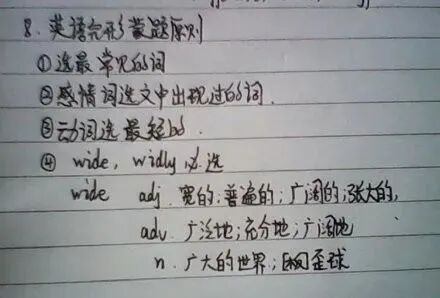 8. 英语完形蒙题原则
①选最常见的词
②感情词选文中出现过的词.
③动词选最短的.
④ wide, widly 必选
wide adj. 宽的; 普遍的; 广阔的; 张大的,
adv. 广泛地; 充分地; 广阔地
n. 广大的世界; 歪球